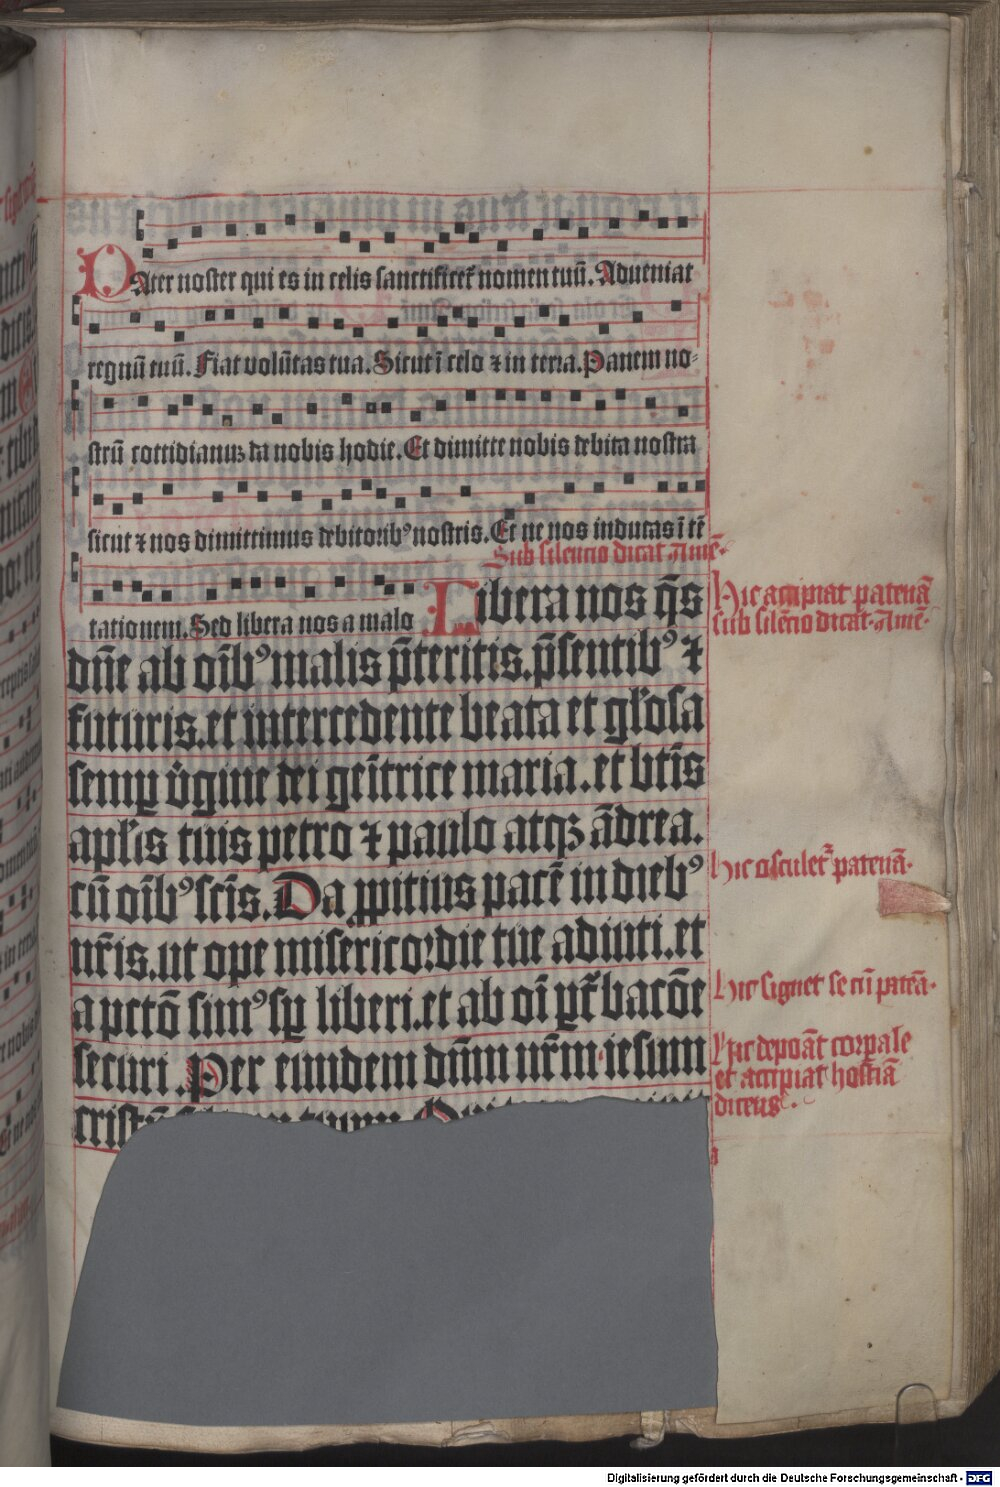 PAter noster qui es in celis sanctificet᷑ nomen tuū. Adueniat
regnū tuū. Fiat volūtas tua. Sicut ī celo ⁊ in terra. Panem no-
strū cottidianuꝫ da nobis hodie. Et dimitte nobis debita nostra
sicut ⁊ nos dimittimus debitoribꝰ nostris. Et ne nos inducas ī tē
Sub silencio dicat Amē.
tationem. Sed libera nos a malo
Libera nos q̄s
Hic accipiat patenā
sub silēcio dicat Amē.
dn̄e ab oīb̾ malis p̄teritis. p̄sentib̾ ⁊
futuris. et intercedente beata et gl̓osa
semꝑ v̓gine dei geītrice maria. et btīs
apl̓is tuis petro ⁊ paulo atqꝫ ādrea.
cū oīb̾ scīs. Da ꝓpitius pacē in dieb̾
Hic osculet᷑ patenā.
nr̄is. ut ope misericordie tue adiuti. et
a pctō sim̾ sꝑ liberi. et ab oī ꝑt᷑bacōe
Hic signet se cū patēa.
securi. Per eundem dn̄m nr̄m iesum
Hic depoāt corpale
et accipiat hostiā
dicens.
Digitalisierung gefördert durch die Deutsche Forschungsgemeinschaft - DFG